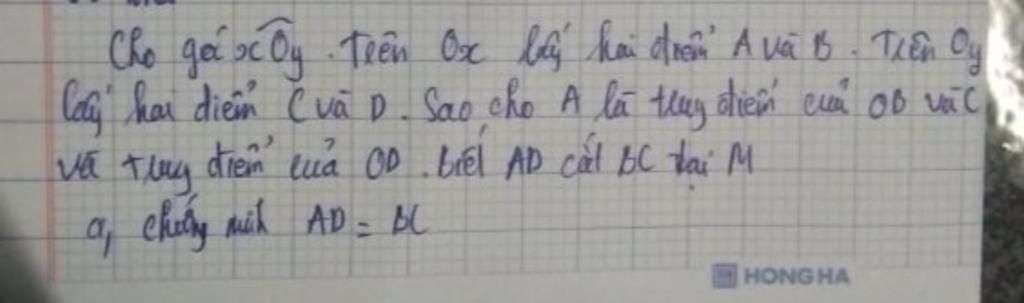 Cho góc xOy. Trên Ox lấy hai điểm A và B. Trên Oy
lấy hai điểm C và D. Sao cho A là trung điểm của OB và C
và trung điểm của OD. biết AD cắt BC tại M
a, chứng minh AD = BC
HONG HA